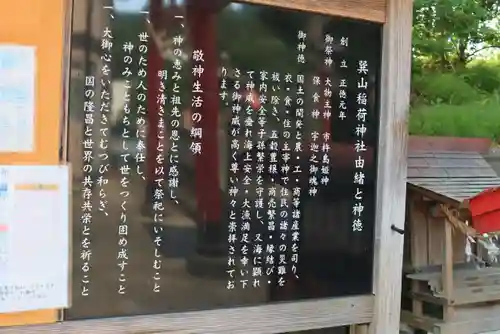 巽山稲荷神社由緒と神徳
創立 正徳元年
御祭神 大物主神 市杵島姫神
保食神 宇迦之御魂神
御神徳 国土の開発と農・工・商等諸産業を司り、
衣・食・住の主宰神で住民の諸々の災難を
祓い除き、五穀豊穣・商売繁昌・縁結び
家内安全等子孫繁栄を守護し、又海に顕れ
て神威を垂れ海上安全・大漁満足を幸い下
さる御神威が高く尊い神々と崇拝されてお
ります。
敬神生活の綱領
一、神の恵みと祖先の恩とに感謝し、
明き清きまことを以て祭祀にいそしむこと
一、世のため人のために奉仕し、
神のみこともちとして世をつくり固め成すこと
一、大御心をいただきてむつび和らぎ、
国の隆昌と世界の共存共栄とを祈ること